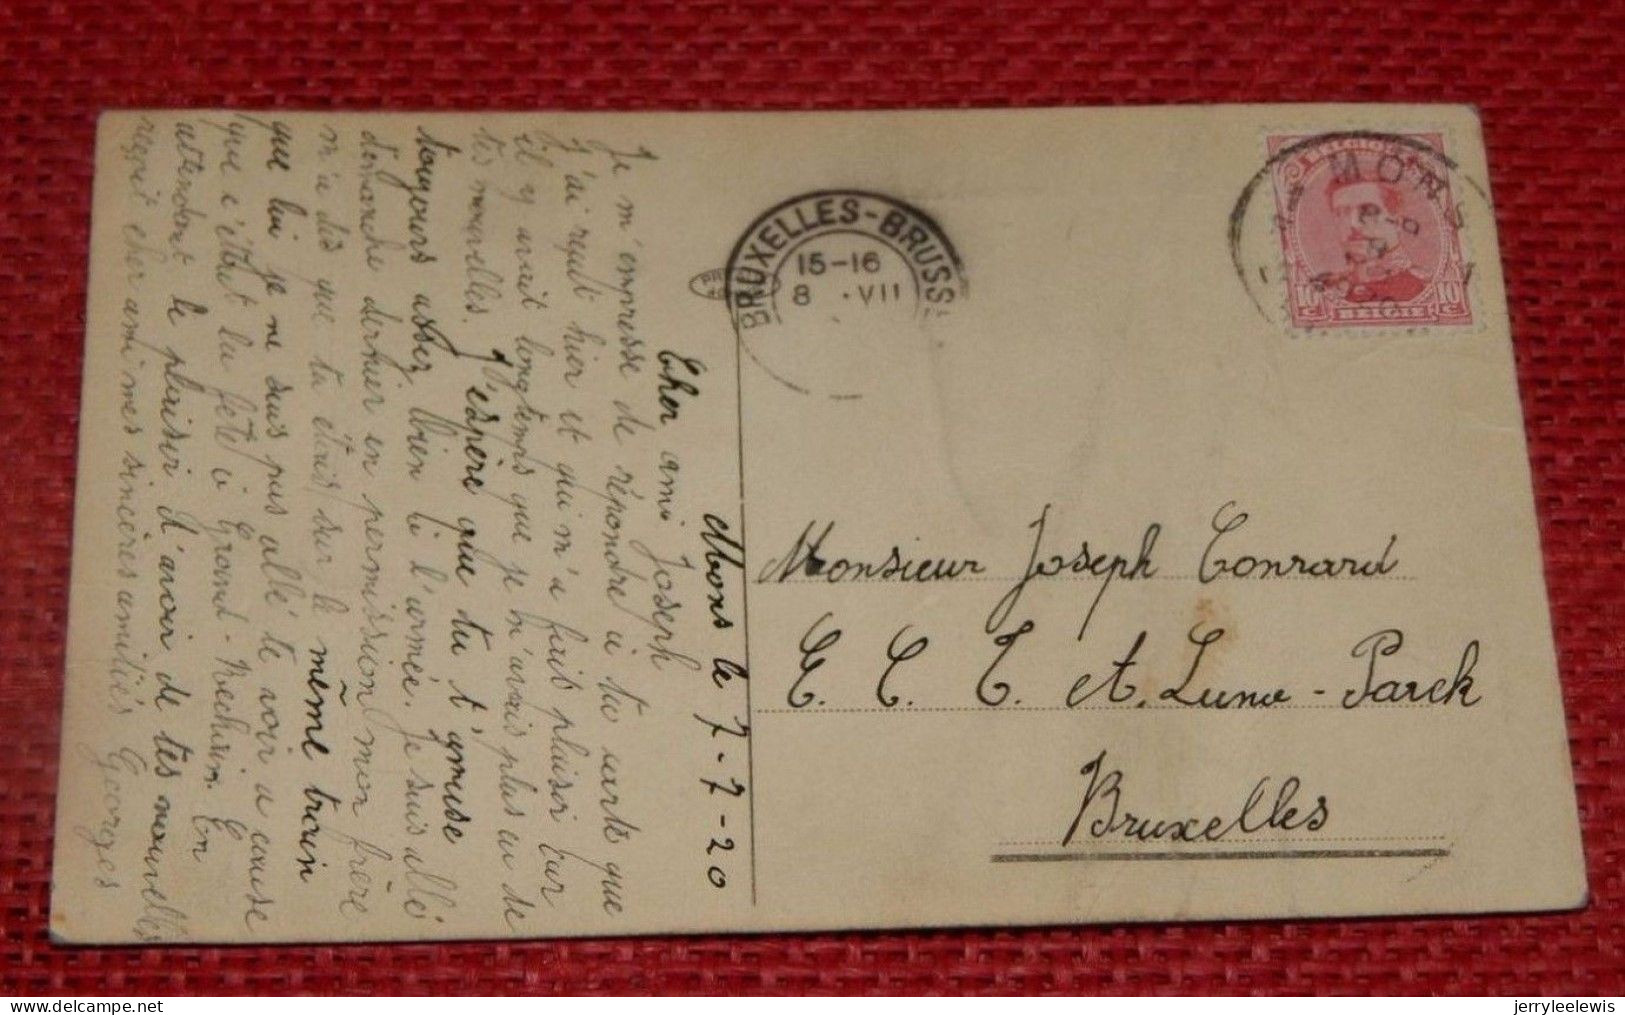 Mons le 7-7-20
Cher ami Joseph
Je m'empresse de répondre à ta carte que
j'ai reçut hier et qui m'a fait plaisir car
il y avait longtemps que je n'avais plus eu de
tes nouvelles. J'espère que tu t'amuse
toujours assez bien à l'armée. Je suis allé
dimanche dernier en permission mon frère
m'a dit que tu étais sur le même train
que lui je ne suis pas allé te voir a cause
que c'était la fête à Grand-Rechain. En
attendant le plaisir d'avoir de tes nouvelles
reçoit cher ami mes sincères amitiés Georges
BRUXELLES-BRUSS
15-16
8 .VII
MONS
10 c
10 c
BELGIË
Monsieur Joseph Conrard
E. C. T. et. Luna-Parck
Bruxelles
delcampe.net
jerryleelewis